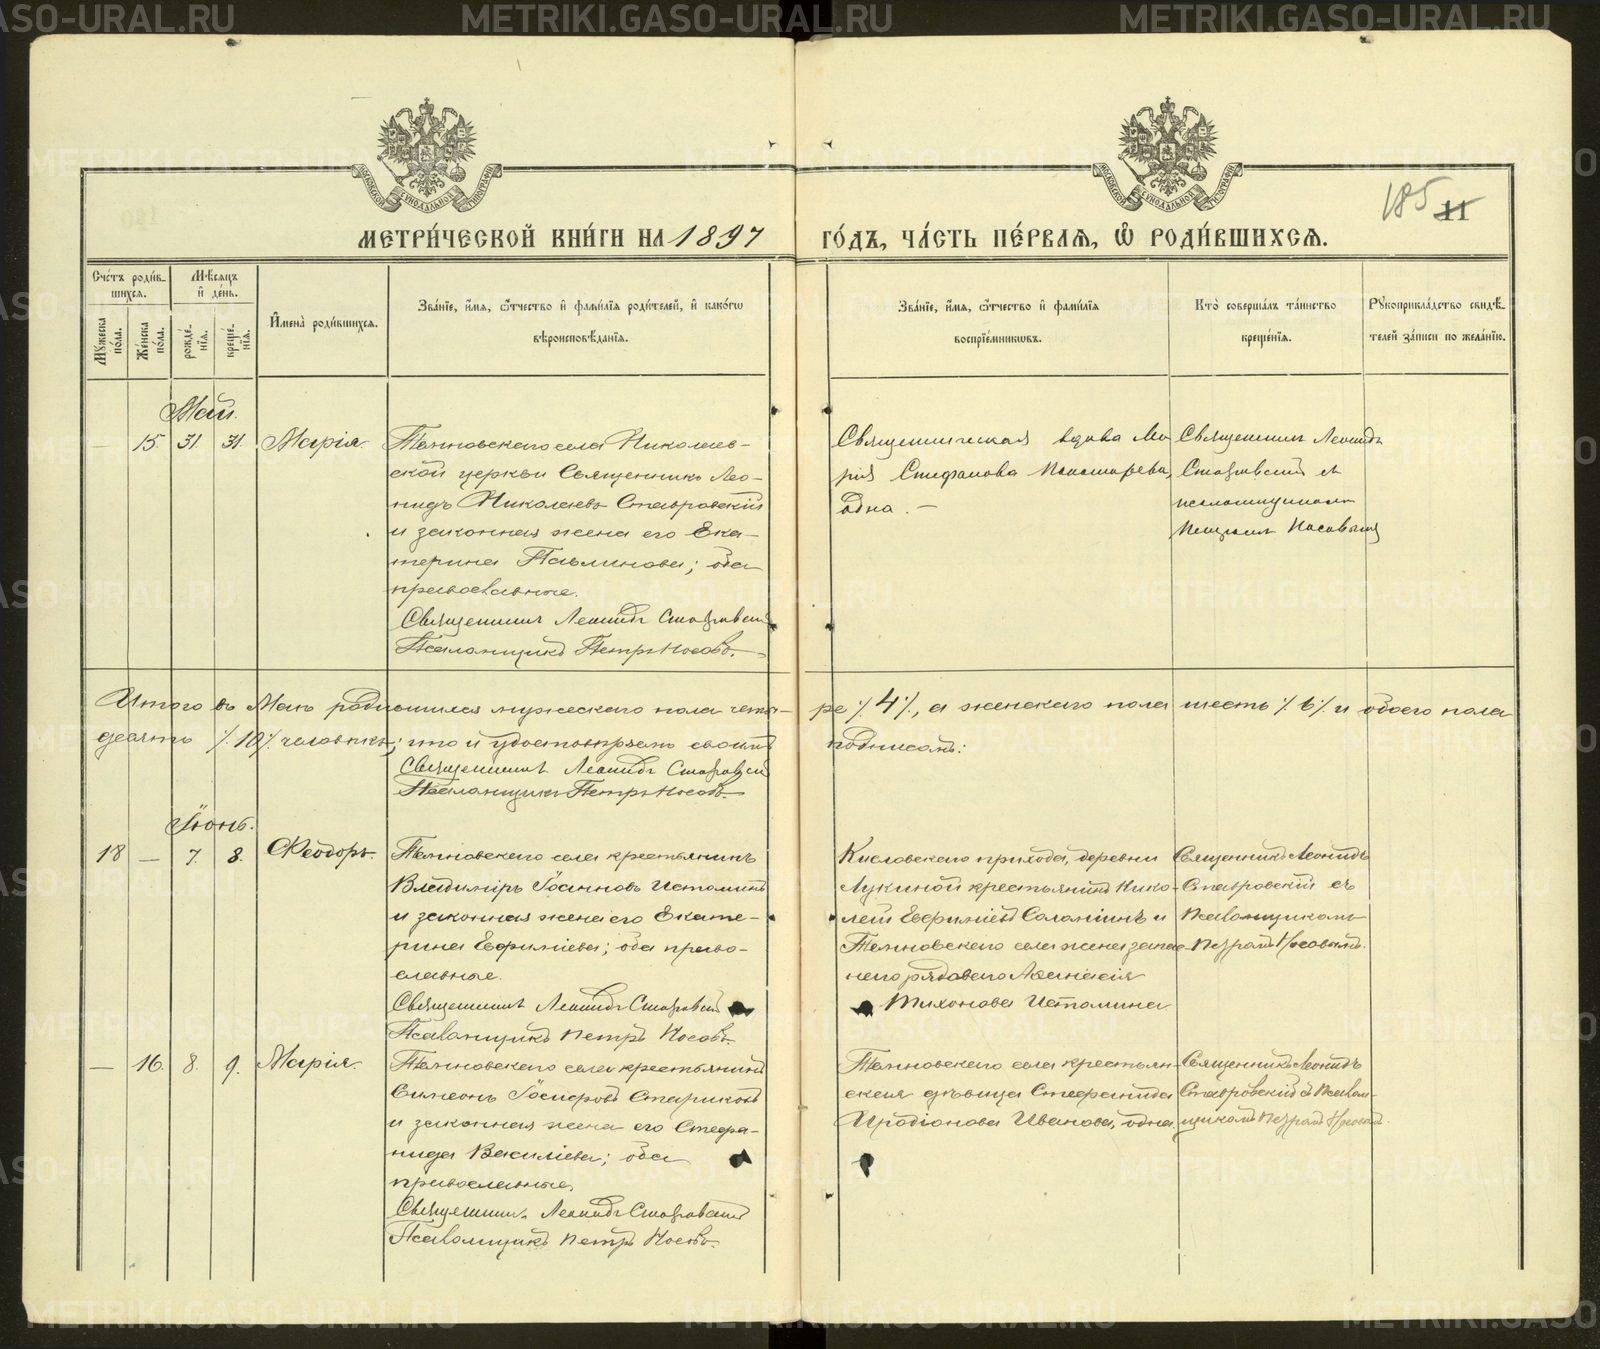 METRIKI.GASO-URAL.RU
185 11
МЕТРИ́ЧЕСКОЙ КНИ́ГИ НА 1897 ГО́ДЪ, ЧА́СТЬ ПЕ́РВАЯ, Ѡ҆ РОДИ́ВШИХСЯ.
Сче́тъ роди́вшихся.
Мѣ́сяцъ и҆ де́нь.
И҆мена̀ роди́вшихся.
Зва́нїе, и҆́мя, ѻ҆́тчество и҆ фами́лїя роди́телей, и҆ како́гѡ вѣроисповѣ́данїя.
Зва́нїе, и҆́мя, ѻ҆́тчество и҆ фами́лїя воспрїе́мникѡвъ.
Кто̀ соверша́лъ та́инство креще́нїя.
Рꙋкоприкла́дство свидѣ́телей за́писи по жела́нїю.
Мꙋ́жеска по́ла.
Же́нска по́ла.
рожде́нїя.
креще́нїя.
Май.
— 15. 31. 31. Марія.
Темновскаго села Николаев-
ской церкви Священникъ Лео-
нидъ Николаевъ Ставровскій
и законная жена его Ека-
терина ; оба
православные.
Священникъ Леонидъ Ставровскій
Псаломщикъ Петръ Носовъ.
Священническая вдова Ма-
рія Стефанова Пономарева,
одна. —
Священникъ Леонидъ
Ставровскій съ
псаломщикомъ
Петромъ Носовымъ
Итого въ Маѣ родившихся мужескаго пола четы-
ре ٪ 4 ٪, а женскаго пола шесть ٪ 6 ٪ и обоего пола
десять ٪ 10 ٪ человѣкъ; что и удостовѣряемъ своимъ
подписомъ:
Священникъ Леонидъ Ставровскій
Псаломщикъ Петръ Носовъ.
Іюнь.
18 — 7. 8. Ѳеодоръ.
Темновскаго села крестьянинъ
Владиміръ Іоанновъ Истоминъ
и законная жена его Екате-
рина Евфиміева; оба право-
славные.
Священникъ Леонидъ Ставровскій
Псаломщикъ Петръ Носовъ.
Кисловскаго прихода, деревни
Лукиной крестьянинъ Нико-
лай Евфиміевъ Саламіинъ и
Темновскаго села жена запас-
наго рядоваго Аѳанасія
Тихонова Истомина
Священникъ Леонидъ
Ставровскій съ
Псаломщикомъ
Петромъ Носовымъ.
— 16. 8. 9. Марія.
Темновскаго села крестьянинъ
Симеонъ Іосифовъ Стариковъ
и законная жена его Стефа-
нида Василіева; оба
православные.
Священникъ Леонидъ Ставровскій
Псаломщикъ Петръ Носовъ.
Темновскаго села крестьян-
ская дѣвица Стефанида
Иродіонова Иванова, одна
Священникъ Леонидъ
Ставровскій съ Псалом-
щикомъ Петромъ Носовымъ.